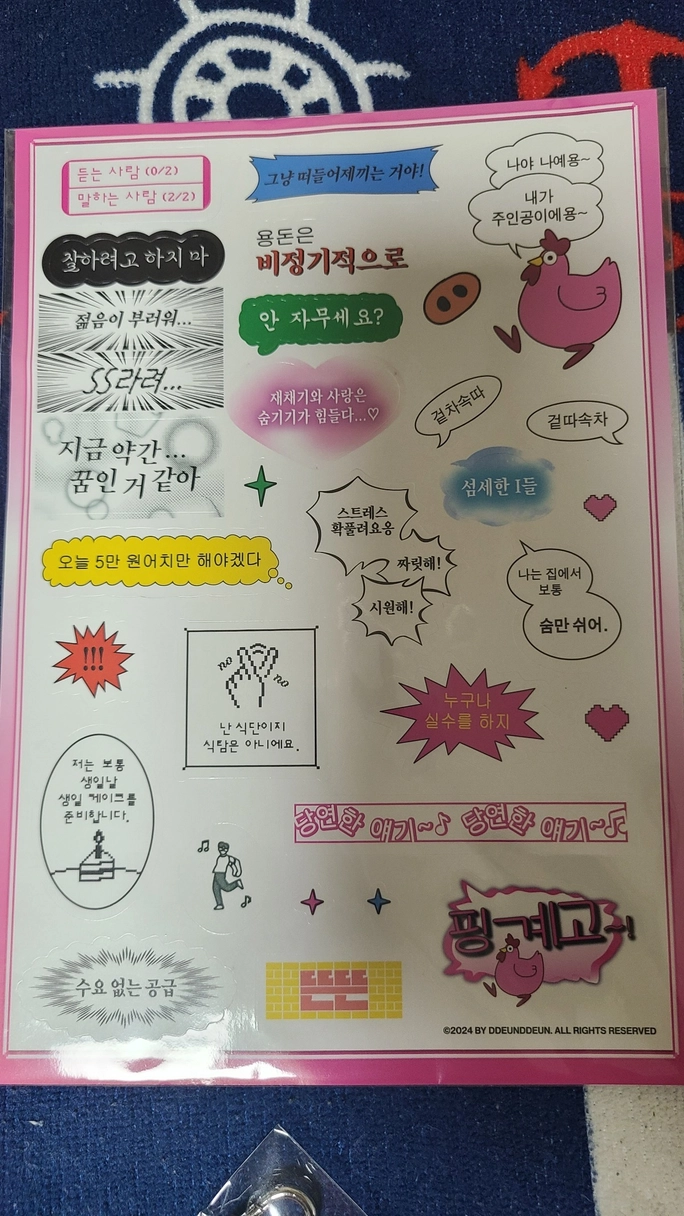 듣는 사람 (0/2)
말하는 사람 (2/2)
그냥 떠들어제끼는 거야!
나야 나예용~
내가
주인공이에용~
잘하려고 하지 마
용돈은
비정기적으로
젊음이 부러워...
안 자무세요?
SS라려...
재채기와 사랑은
숨기기가 힘들다...♡
겉차속따
겉따속차
지금 약간...
꿈인 거 같아
섬세한 I들
스트레스
확풀려요옹
짜릿해!
시원해!
오늘 5만 원어치만 해야겠다
나는 집에서
보통
숨만 쉬어.
!!!
no
no
난 식단이지
식탐은 아니에요.
누구나
실수를 하지
저는 보통
생일날
생일 케이크를
준비합니다.
당연한 얘기~♪ 당연한 얘기~♫
핑계고~!
수요 없는 공급
뜬뜬
©2024 BY DDEUNDDEUN. ALL RIGHTS RESERVED